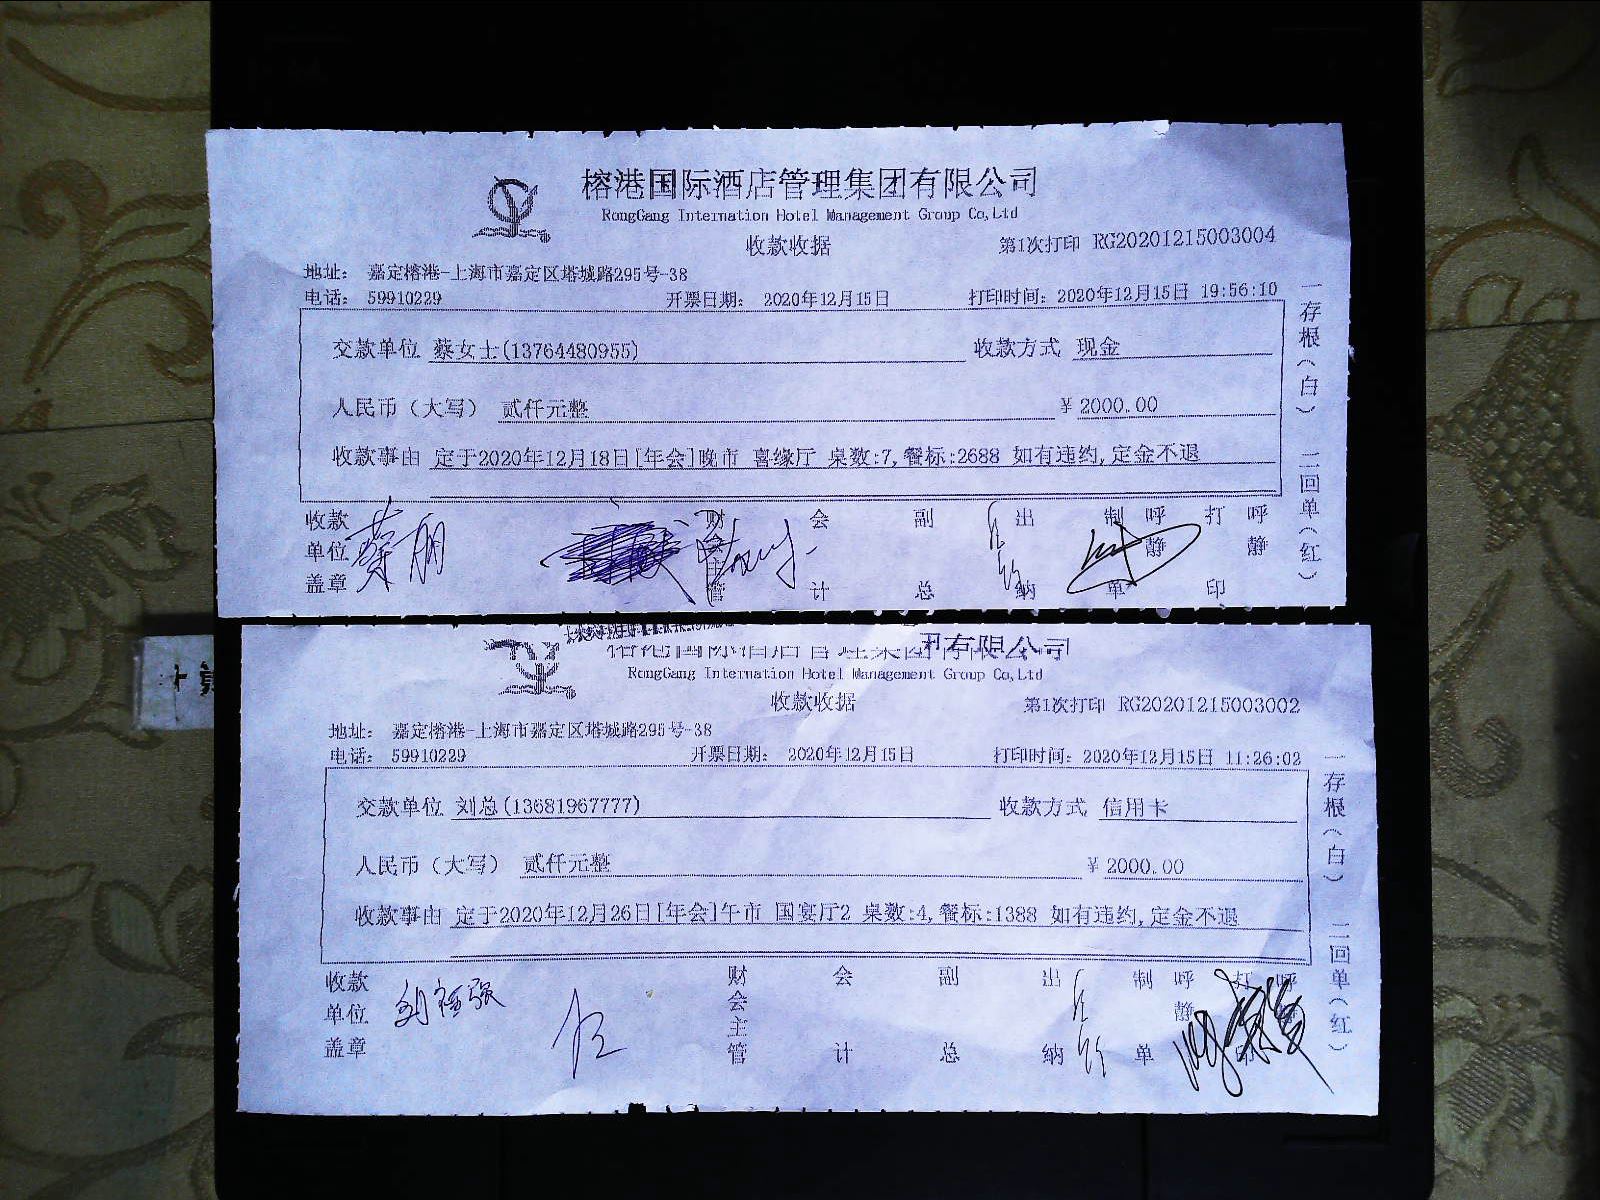 榕港国际酒店管理集团有限公司
RongGang Internation Hotel Management Group Co,Ltd
收款收据
第1次打印 RG20201215003004
地址： 嘉定榕港-上海市嘉定区塔城路295号-38
电话： 59910229 开票日期： 2020年12月15日 打印时间：2020年12月15日 19:56:10
交款单位 蔡女士(13764480955) 收款方式 现金
人民币（大写） 贰仟元整 ￥2000.00
收款事由 定于2020年12月18日[年会]晚市 喜缘厅 桌数:7,餐标:2688 如有违约,定金不退
一存根（白） 二回单（红）
收款单位盖章 财会主管 会计 副总 出纳 制单 呼静 打印 呼静
榕港国际酒店管理集团有限公司
RongGang Internation Hotel Management Group Co,Ltd
收款收据
第1次打印 RG20201215003002
地址： 嘉定榕港-上海市嘉定区塔城路295号-38
电话： 59910229 开票日期： 2020年12月15日 打印时间：2020年12月15日 11:26:02
交款单位 刘总(13681967777) 收款方式 信用卡
人民币（大写） 贰仟元整 ￥2000.00
收款事由 定于2020年12月26日[年会]午市 国宴厅2 桌数:4,餐标:1388 如有违约,定金不退
一存根（白） 二回单（红）
收款单位盖章 财会主管 会计 副总 出纳 制单 呼静 打印 呼静